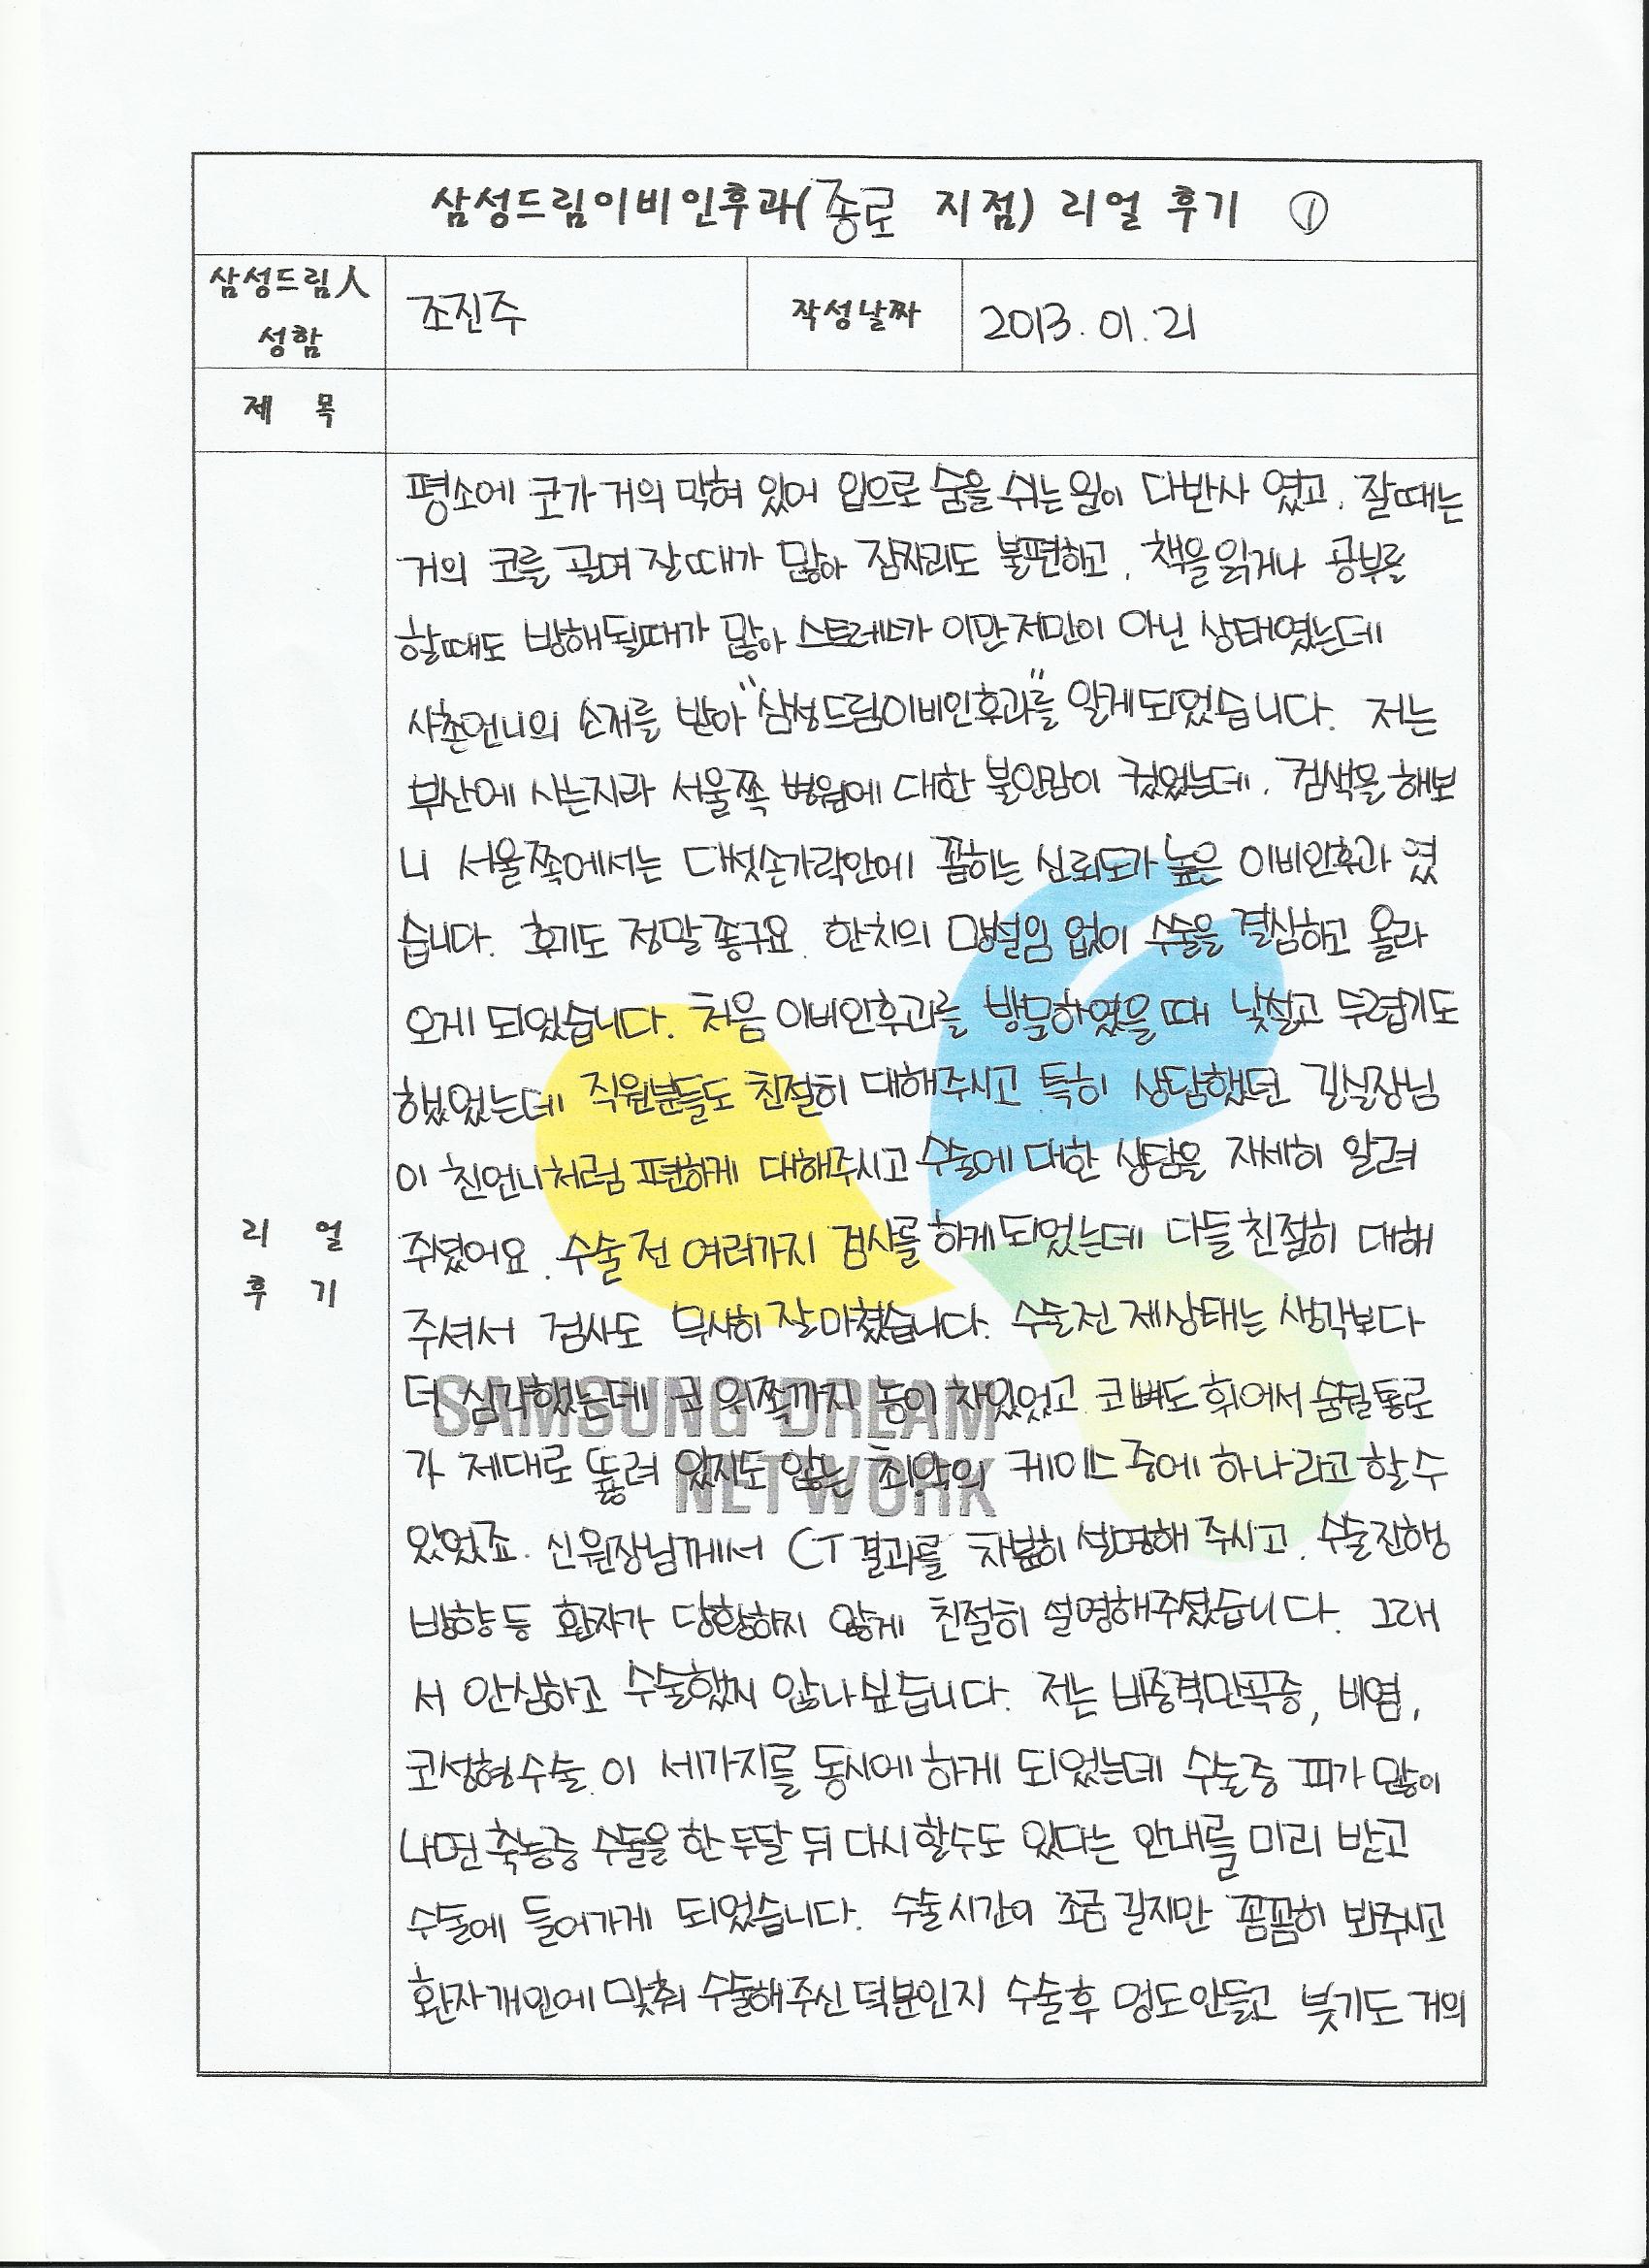 삼성드림이비인후과(종로 지점) 리얼 후기 ①
삼성드림人
성함
조진주
작성날짜
2013. 01. 21
제 목
평소에 코가 거의 막혀 있어 입으로 숨을 쉬는 일이 다반사 였고, 잘때는
거의 코를 골며 잘때가 많아 잠자리도 불편하고, 책을 읽거나 공부를
할때도 방해될때가 많아 스트레스가 이만 저만이 아닌 상태였는데
사촌언니의 소개를 받아 "삼성드림이비인후과"를 알게되었습니다. 저는
부산에 사는지라 서울쪽 병원에 대한 불안감이 컸었는데, 검색을 해보
니 서울쪽에서는 다섯손가락안에 꼽히는 신뢰도가 높은 이비인후과 였
습니다. 후기도 정말 좋구요. 한치의 망설임 없이 수술을 결심하고 올라
오게 되었습니다. 처음 이비인후과를 방문하였을 때 낯설고 두렵기도
했었는데 직원분들도 친절히 대해주시고 특히 상담했던 길실장님
이 친언니처럼 편하게 대해주시고 수술에 대한 상담을 자세히 알려
주셨어요. 수술 전 여러가지 검사를 하게되었는데 다들 친절히 대해
주셔서 검사도 무사히 잘 마쳤습니다. 수술전 제상태는 생각보다
더 심각했는데 코 위쪽까지 농이 차있었고 코뼈도 휘어서 숨쉴 통로
가 제대로 뚫려 있지도 않는 최악의 케이스 중에 하나라고 할 수
있었죠. 신원장님께서 CT 결과를 차분히 설명해 주시고, 수술진행
방향 등 환자가 당황하지 않게 친절히 설명해주셨습니다. 그래
서 안심하고 수술했지 않나 싶습니다. 저는 비중격만곡증, 비염,
코성형수술 이 세가지를 동시에 하게 되었는데 수술중 피가 많이
나면 축농증 수술을 한 두달 뒤 다시 할수도 있다는 안내를 미리 받고
수술에 들어가게 되었습니다. 수술시간이 조금 길지만 꼼꼼히 봐주시고
환자개인에 맞춰 수술해주신 덕분인지 수술후 멍도안들고 붓기도 거의
리 얼
후 기
SAMSUNG DREAM
NETWORK